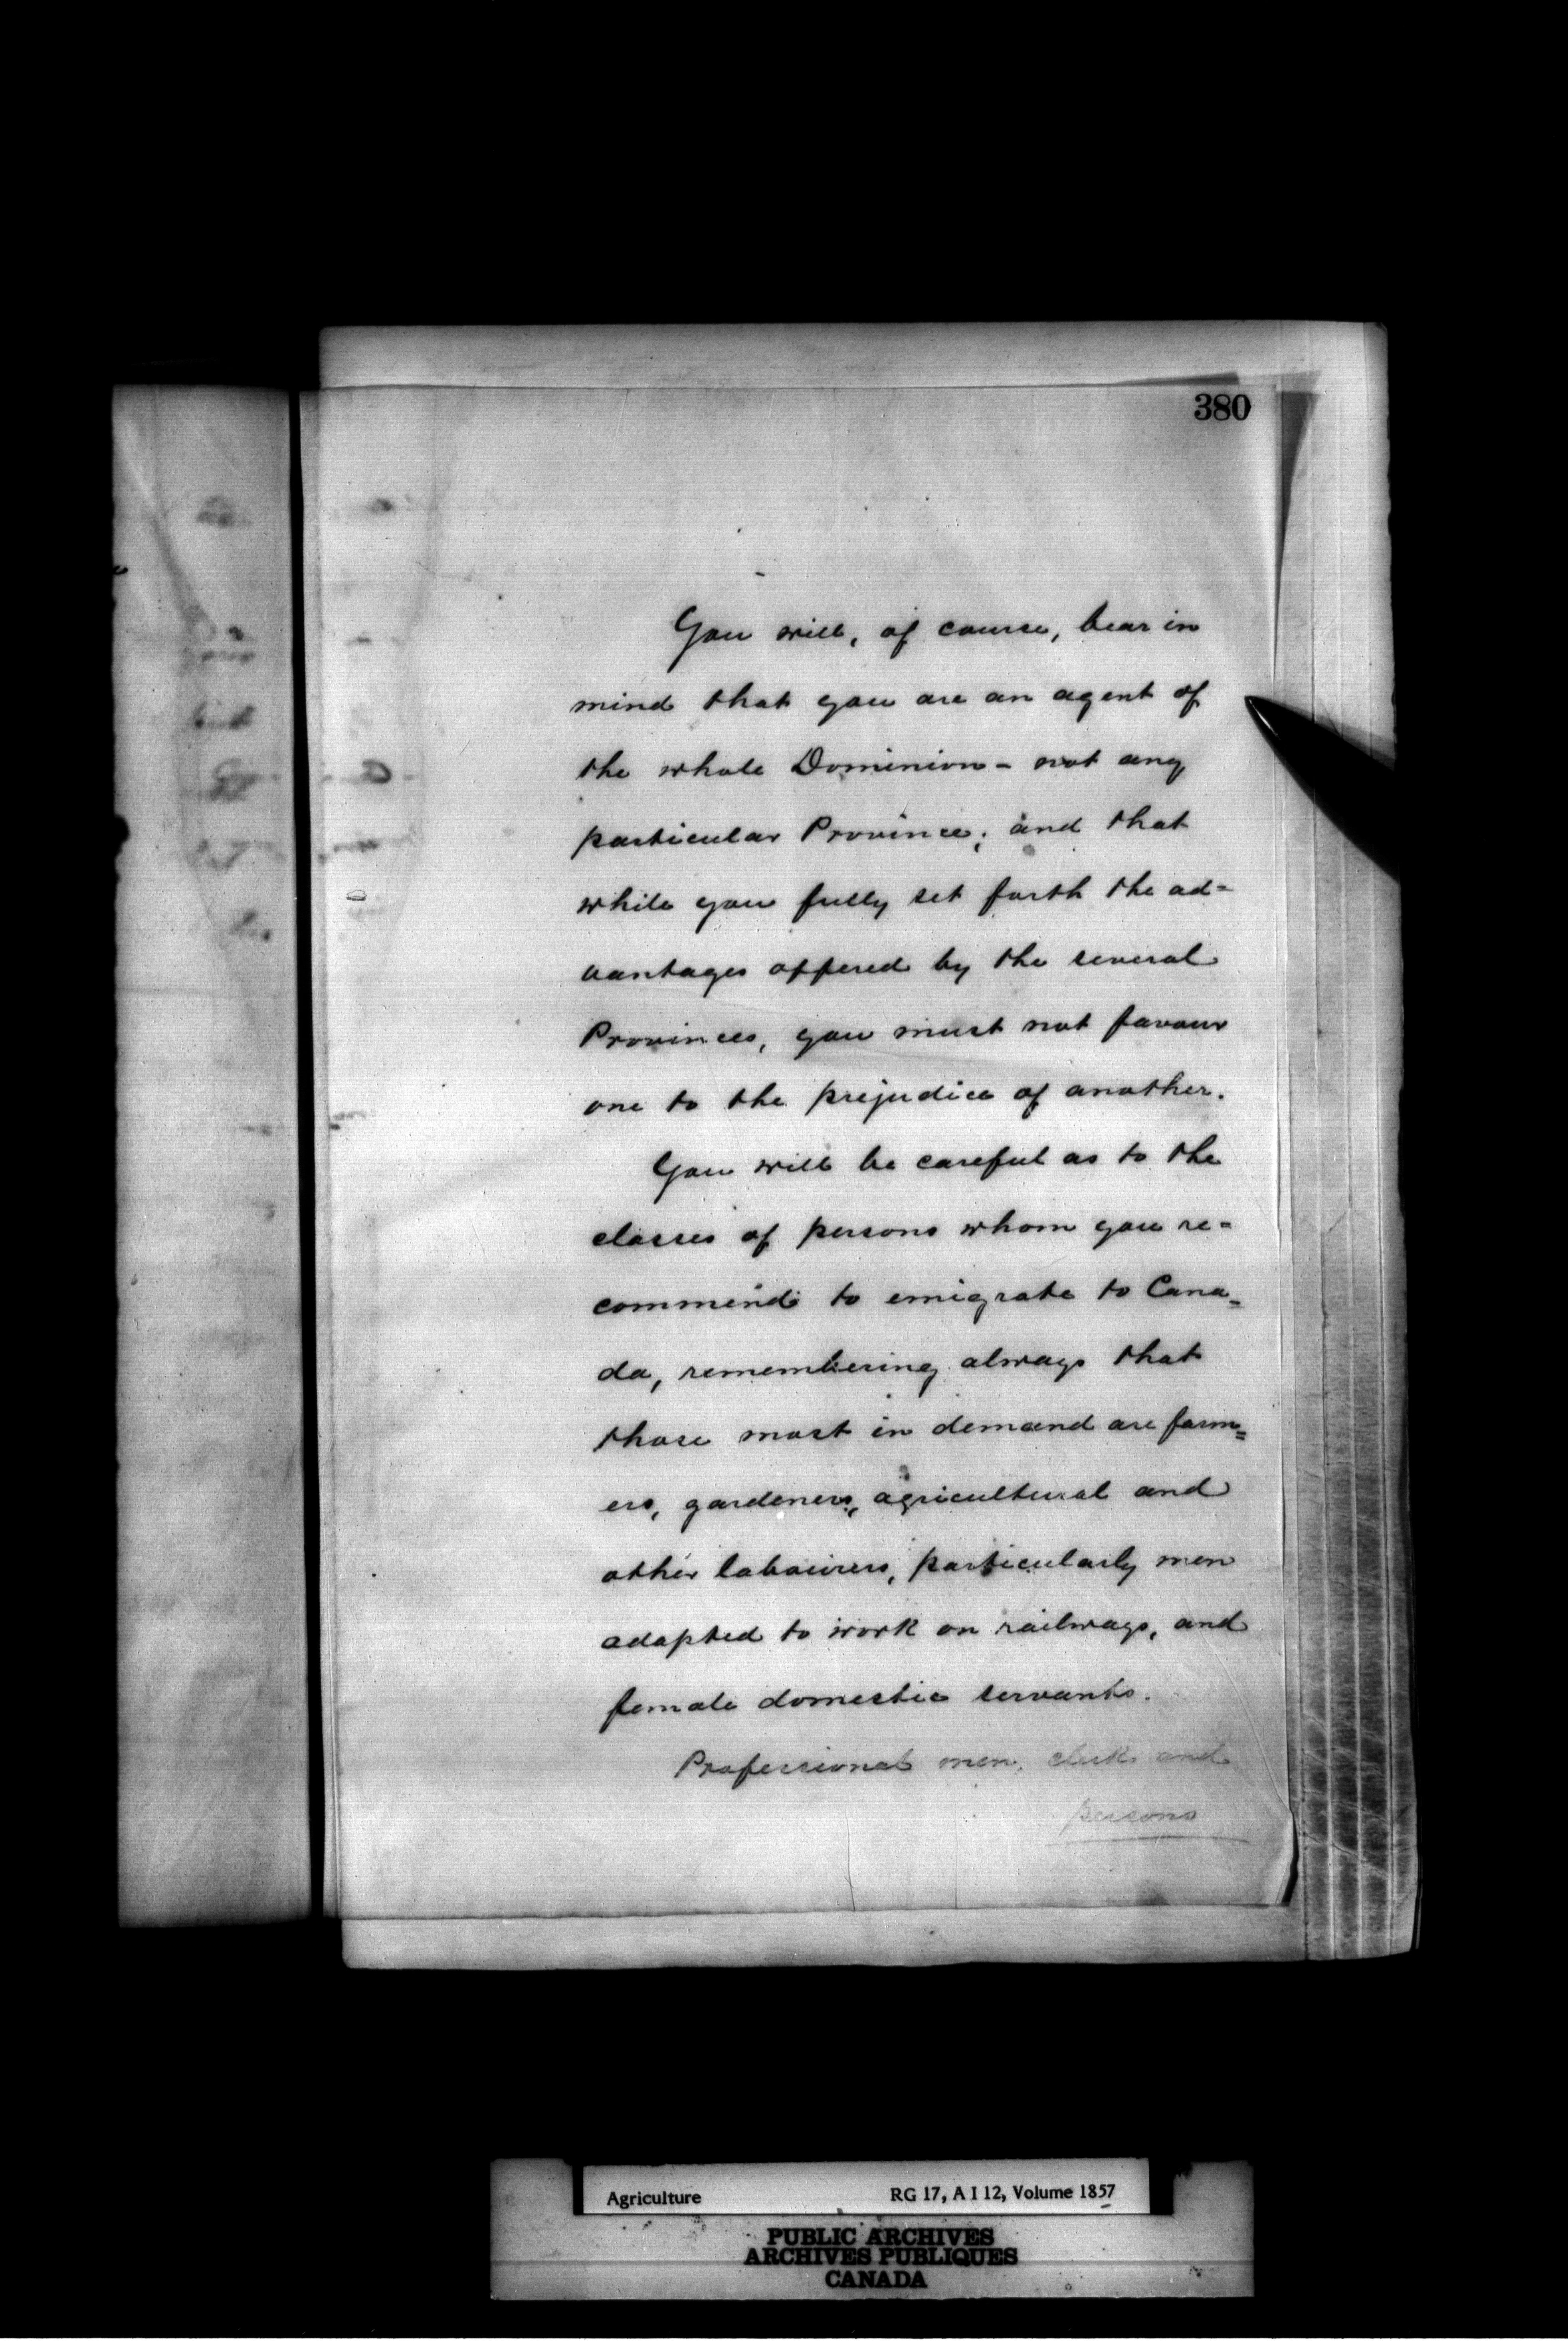 380
You will, of course, bear in
mind that you are an agent of
the whole Dominion - not any
particular Province; and that
while you fully set forth the ad=
vantages offered by the several
Provinces, you must not favour
one to the prejudice of another.
You will be careful as to the
classes of persons whom you re=
commend to emigrate to Cana=
da, remembering always that
those most in demand are farm=
ers, gardeners, agricultural and
other labourers, particularly men
adapted to work on railways, and
female domestic servants.
Professional men, clerks and
persons
Agriculture RG 17, A I 12, Volume 1857
PUBLIC ARCHIVES
ARCHIVES PUBLIQUES
CANADA